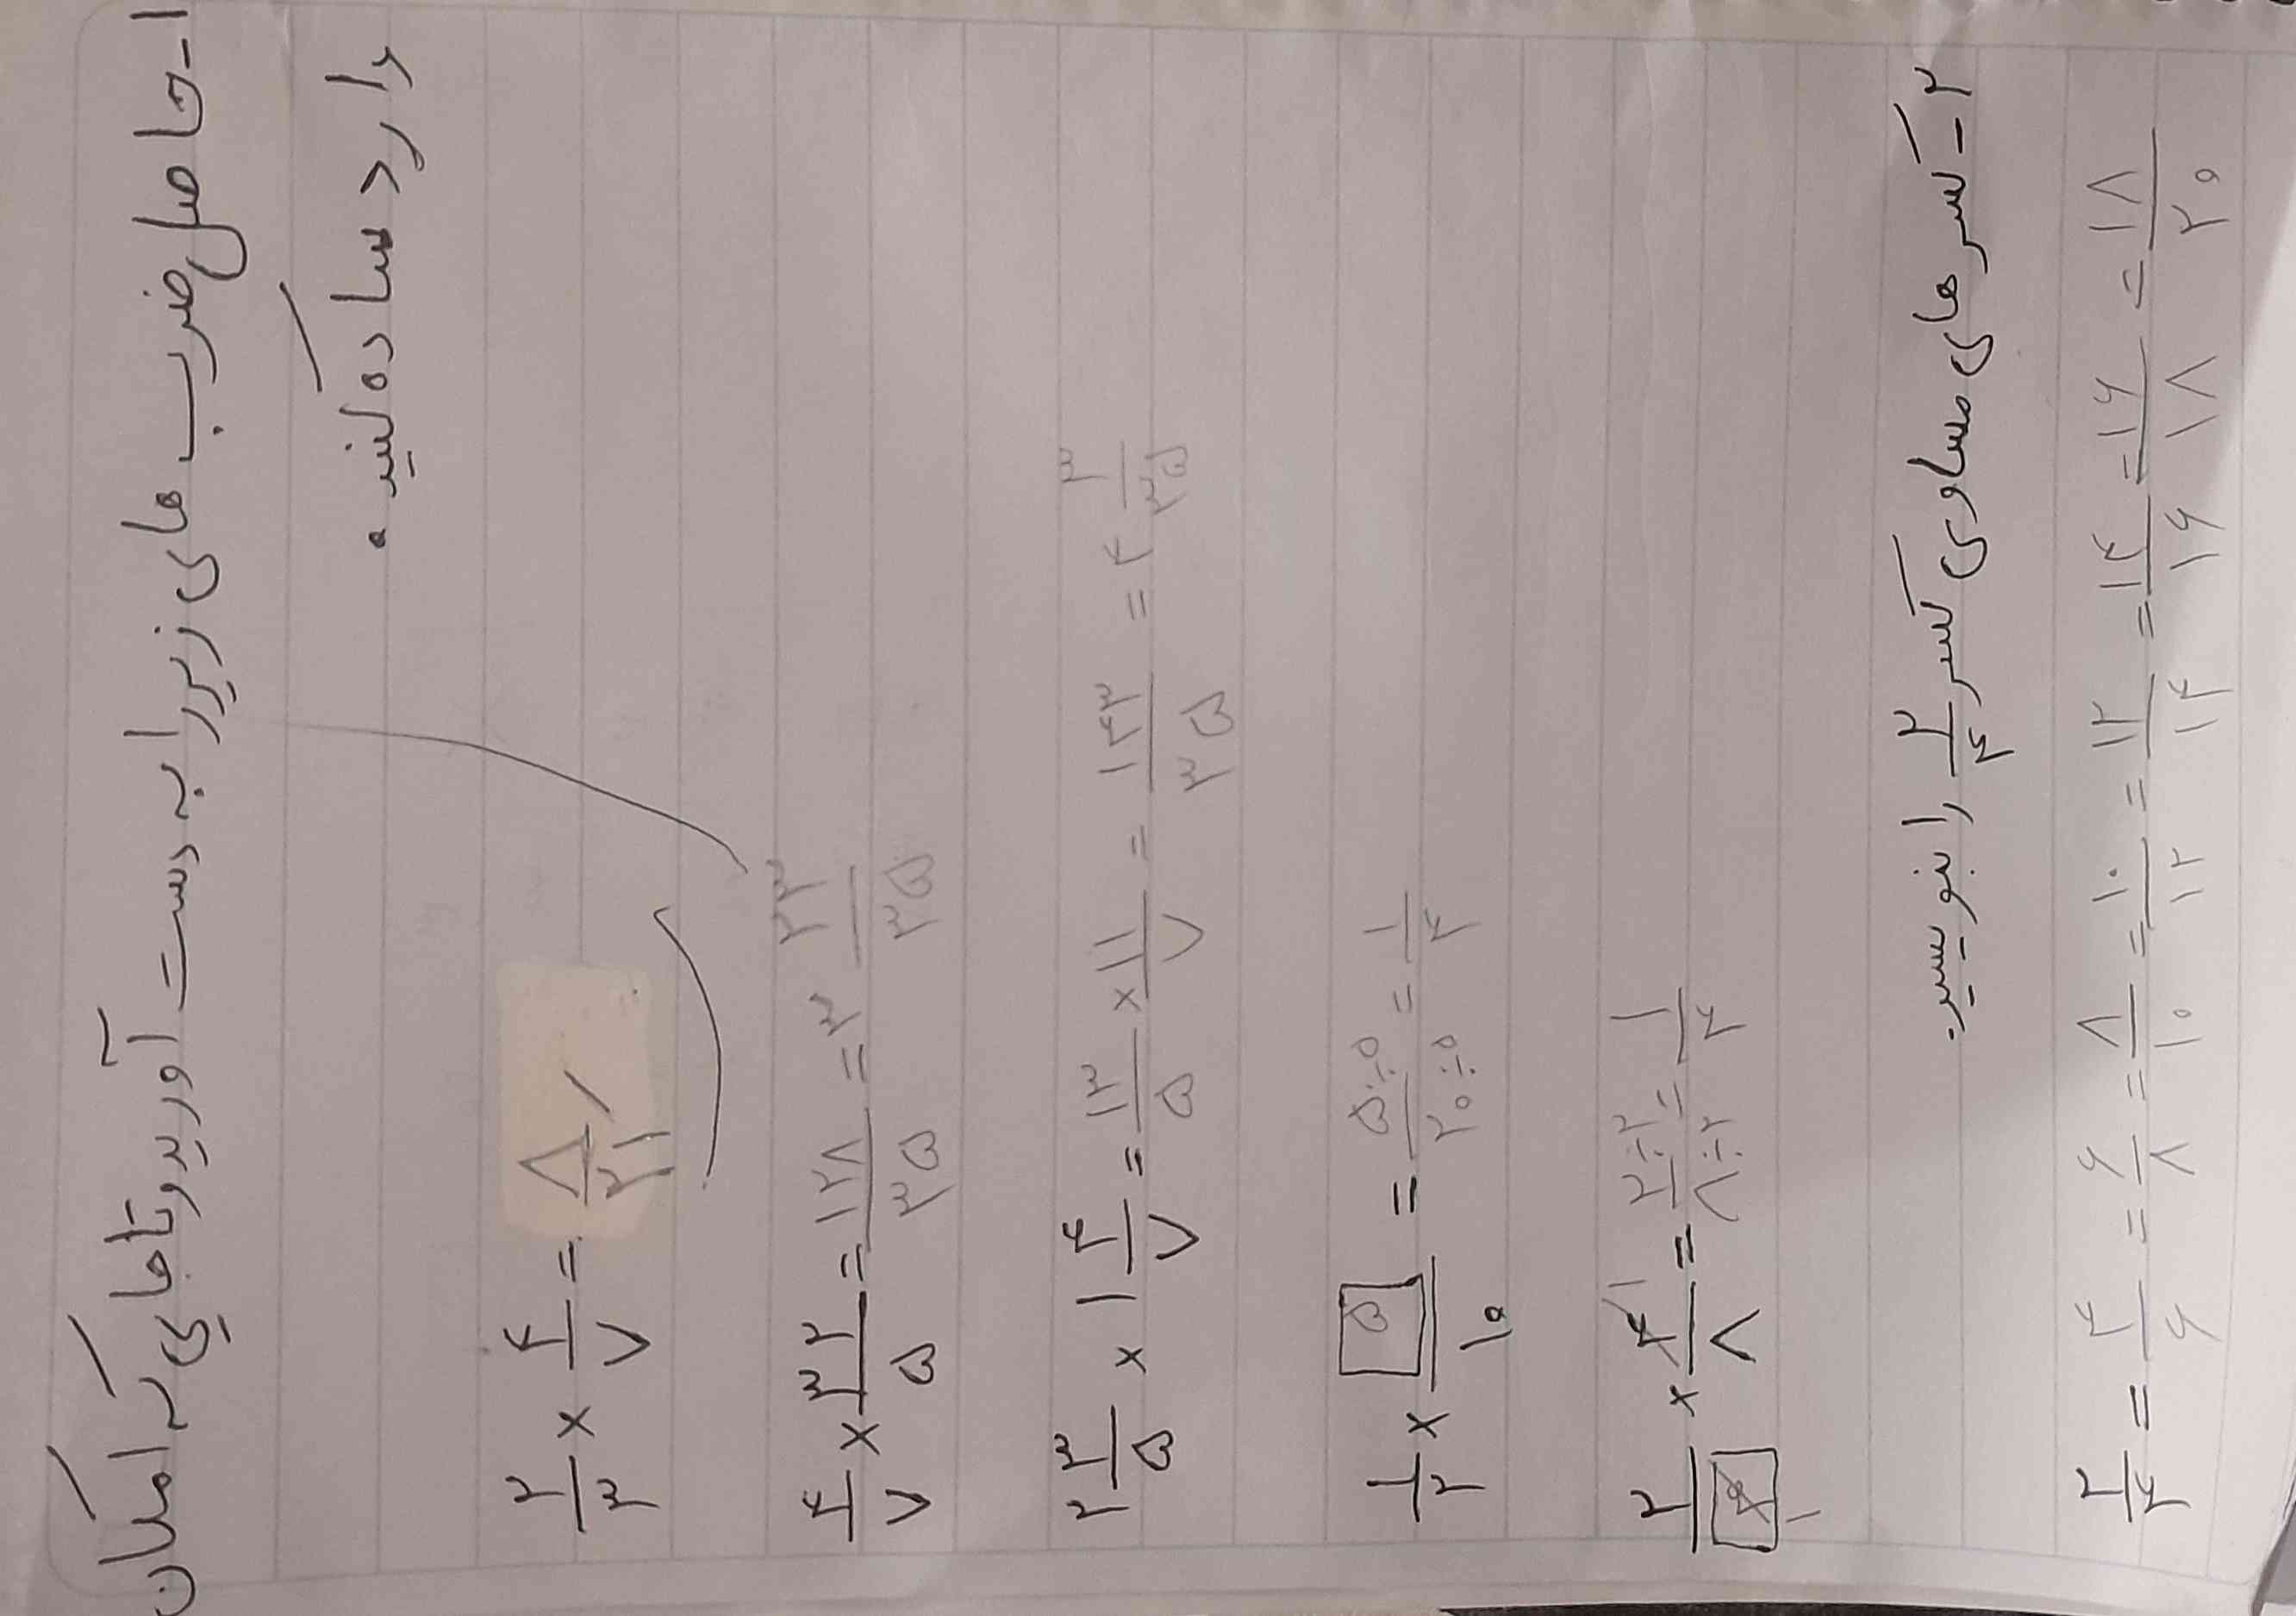 ۱-حاصل ضرب های زیر را به دست آورید و تا جایی که امکان
دارد ساده کنید.
۲/۳ × ۴/۷ = ۸/۲۱
۴/۷ × ۳۲/۵ = ۱۲۸/۳۵ = ۳ ۲۳/۳۵
۲ ۳/۵ × ۱ ۴/۷ = ۱۳/۵ × ۱۱/۷ = ۱۴۳/۳۵ = ۴ ۳/۳۵
۱/۲ × ۵/۱۰ = ۵÷۵/۲۰÷۵ = ۱/۴
۲/۴ × ۴/۸ = ۲÷۲/۸÷۲ = ۱/۴
۱ ۱
۲-کسر های مساوی کسر ۲/۴ را بنویسید.
۲/۴ = ۴/۶ = ۶/۸ = ۸/۱۰ = ۱۰/۱۲ = ۱۲/۱۴ = ۱۴/۱۶ = ۱۶/۱۸ = ۱۸/۲۰